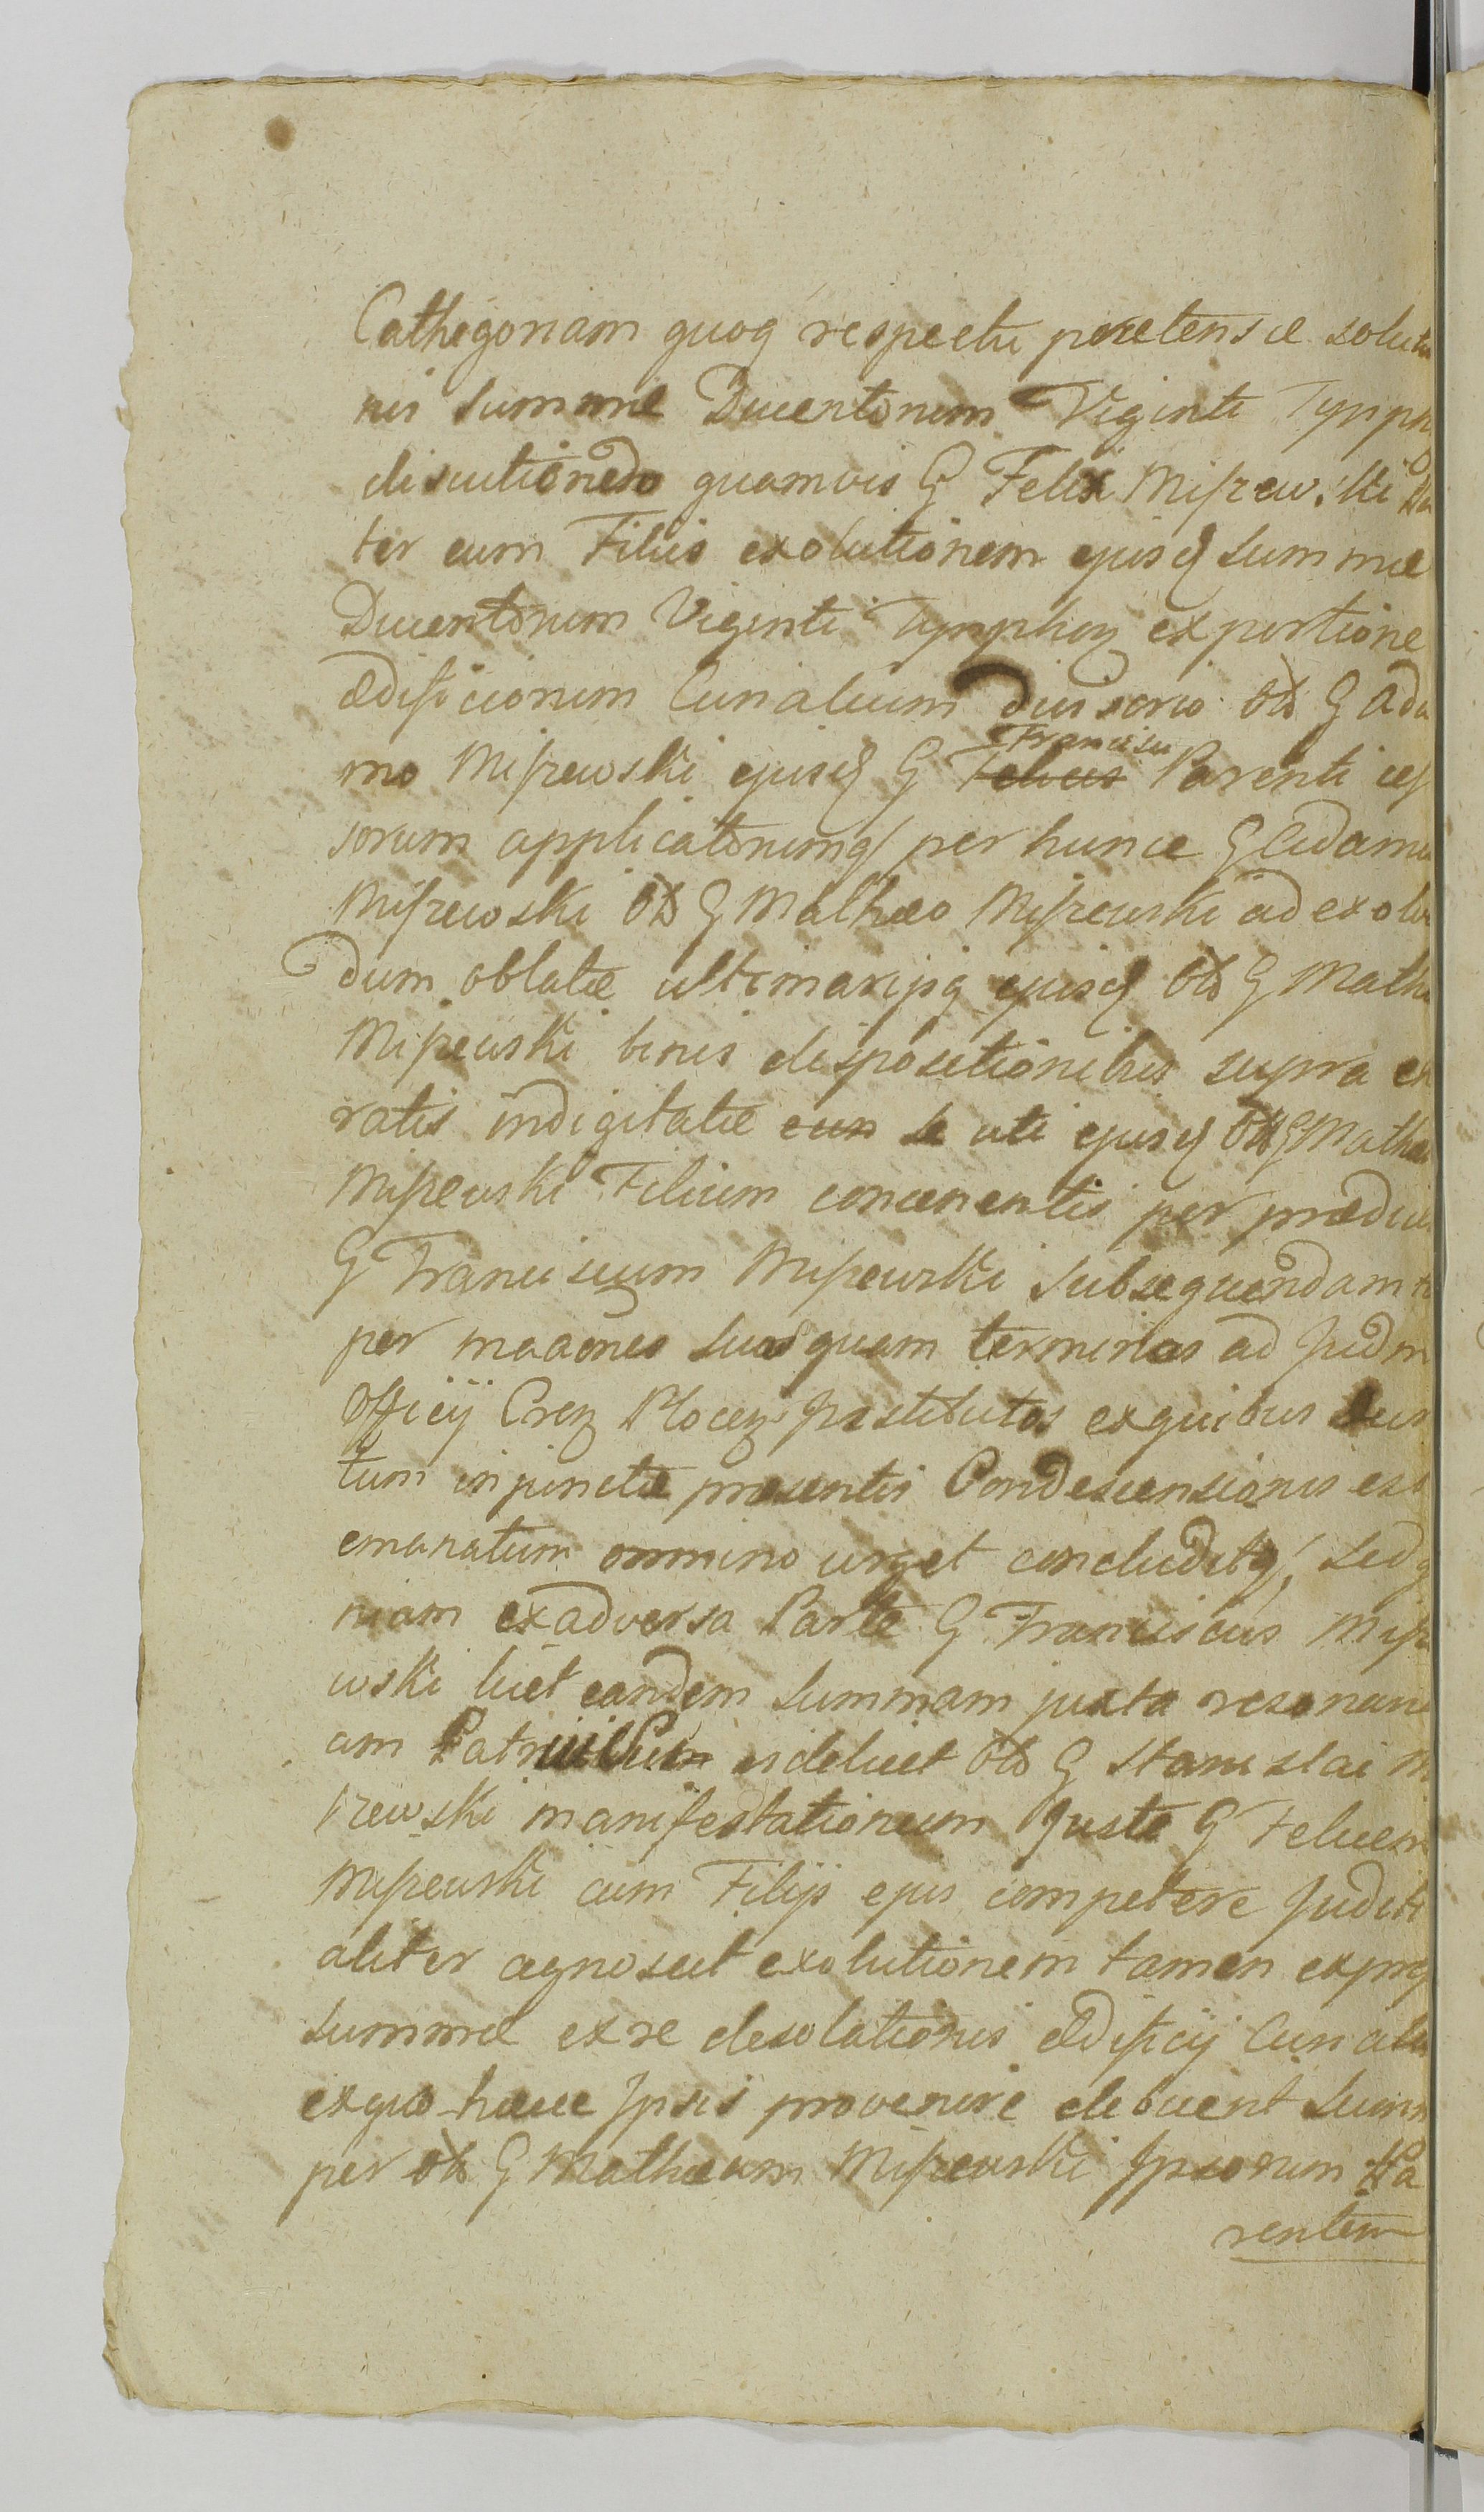 Cathegoriam quoq respectu praetensae solutio
nis Summae Ducentorum Viginti Tynph
discutiendo quamvis G Felix Miszewski Pa
ter cum Filiis exolutionem ejusd Summae
Ducentorum Viginti Tynphoz exportione
aedificiorum Curialium divisorio Ols G Ada
mo Miszewski ejusd G Felicis Francisci Parenti ces
sorum applicatorumq per hunce G Adamum
Miszewski Ols G Mathaeo Miszewski ad exolve
dum oblatae ultimarijsq ejusd Ols G Matha
Miszewski binis dispositionibus supra ex
ratis indigitatae cum se uti ejusd Ols G Mathaei
Miszewski Filium concernentis per praedict
G Franciscum Miszewski Subsequendam
per maaones suas quam terminos ad Judm
Officij Crez Plocez Institutos exquibus
tum injunctae praesentis Condescensionis est
emanatum omnino urget concluditq, Sed q
niam exadversa Parte G Franciscus Misze
wski licet eandem Summam juxta resonanti
am videlicet Ols G Stanislai Mi
szewski manifestationum Juste G Felicem
Miszewski cum Filijs ejus competere Judici
aliter agnoscit exolutionem tamen
Summae exre desolationis aedificij Curialis
exquo haece Ipsis provenire debuerit Summ
per Ols G Mathaeum Miszewski Ipsorum Pa
rentem